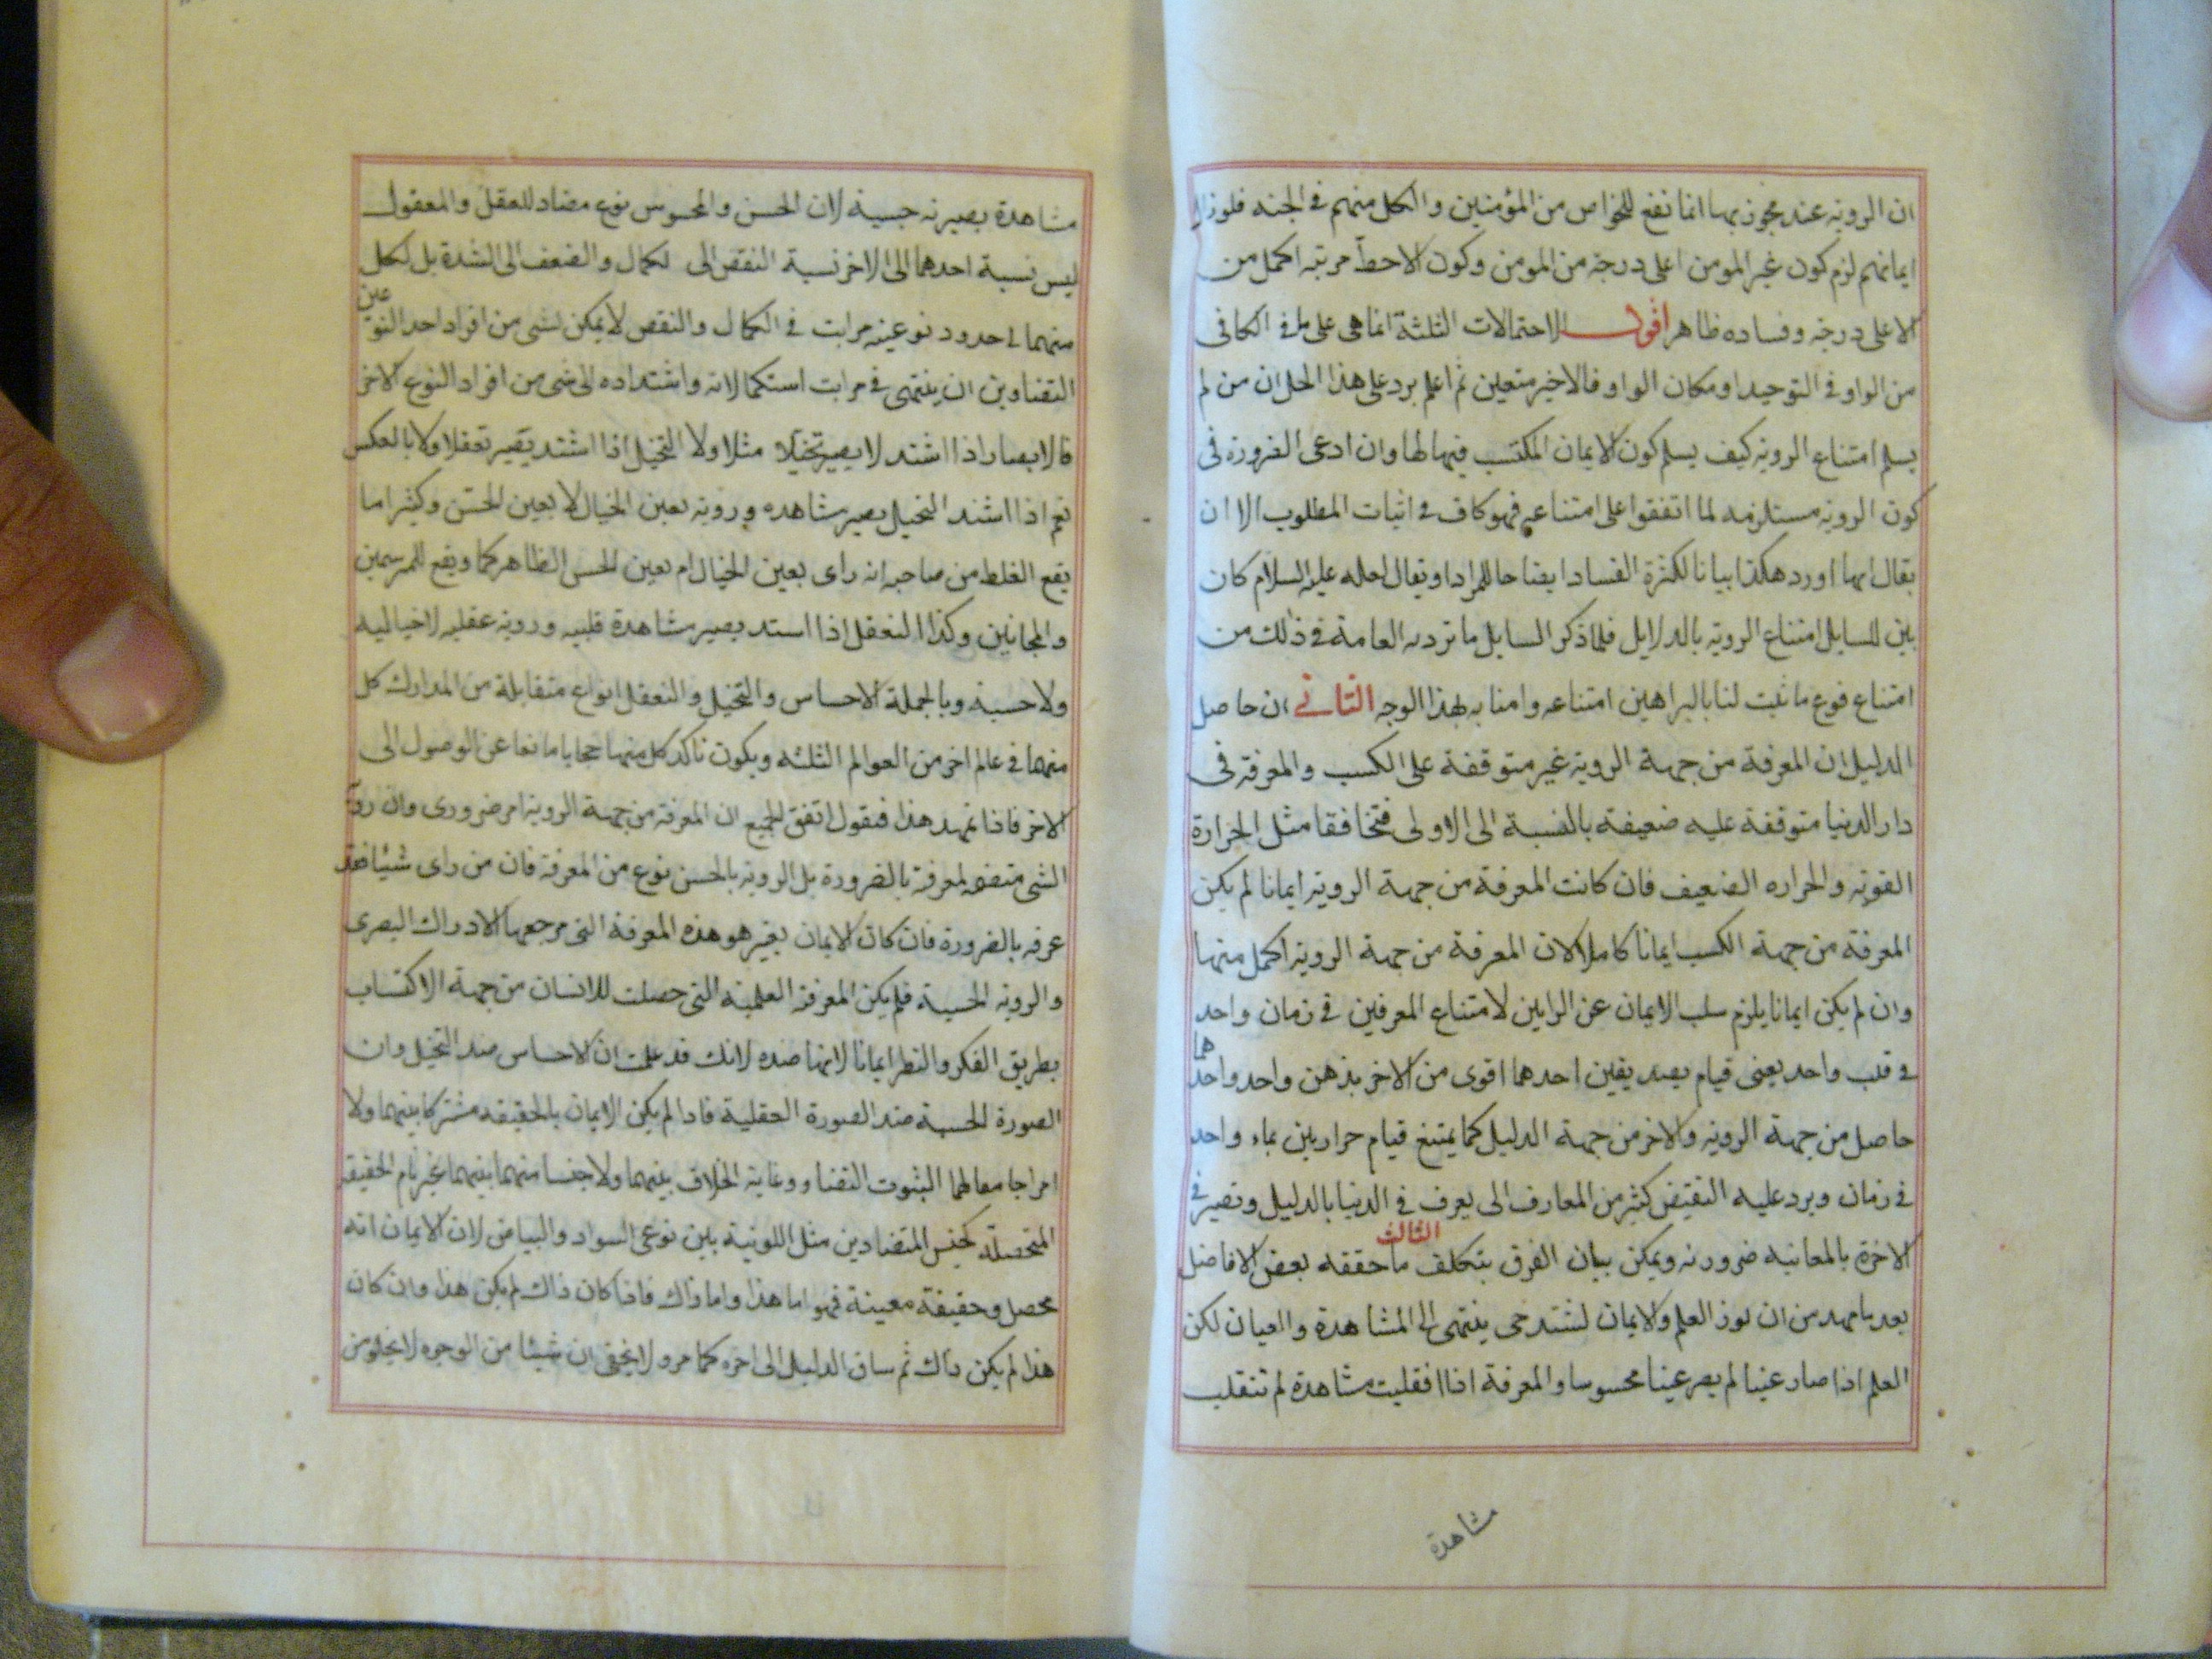 ان الروية عند مجوزيها انما تقع للخواص من المؤمنين والكل منهم في الجنة فلو زال
ايمانهم لزم كون غير المومن اعلى درجة من المومن وكون الاحط مرتبة اكمل من
الاعلى درجة وفساده ظاهر اقول الاحتمالات الثلثة انما هي على ما في الكافي
من الواو في التوحيد او مكان الواو فالاخير متعين ثم اعلم يرد على هذا الحل ان من لم
يسلم امتناع الروية كيف يسلم كون الايمان المكتسب فيها لها وان ادعى الضرورة في
كون الروية مستلزمه لما اتفقوا على امتناعه فهو كاف في اثبات المطلوب الا ان
يقال انها اورد هكذا بيانا لكثرة الفساد ايضاحا للمراد او يقال لعله عليه السلام كان
بين للسايل امتناع الروية بالدلايل فلما ذكر السايل ما ترديه العامة في ذلك من
امتناع فوع ما ثبت لنا بالبراهين امتناعه وامنا به بهذا الوجه الثاني ان حاصل
الدليل ان المعرفة من جهة الروية غير متوقفة على الكسب والمعرفة في
دار الدنيا متوقفة عليه ضعيفة بالنسبة الى الاولى فتخافقا مثل الحرارة
القوية والحراره الضعيف فان كانت المعرفة من جهة الروية ايمانا لم يكن
المعرفة من جهة الكسب ايمانا كاملا لان المعرفة من جهة الروية اكمل منها
وان لم يكن ايمانا يلزم سلب الايمان عن الرايين لامتناع المعرفين في زمان واحد
في قلب واحد يعنى قيام يصديقين احدهما اقوى من الاخر بذهن واحد واحدهما
حاصل من جهة الروية والاخر من جهة الدليل كما يمتنع قيام حرارتين بماء واحد
في زمان ويرد عليه النقيض كثير من المعارف الى يعرف في الدنيا بالدليل وتصير في
الاخرة بالمعاينة ضرورية ويمكن بيان الفرق بتكلف الثالث ما حققه بعض الافاضل
بعد ما مهد من ان نور العلم والايمان لشتد حى ينتهى الى المشاهدة والعيان لكن
العلم اذا صار عينا لم يصر عينا محسوسا والمعرفة اذا افقلبت مشاهدة لم تنقلب
مشاهدة
مشاهدة بصيرية حسية لان الحس والمحسوس نوع مضاد للعقل والمعقول
ليس نسبة احدهما الى الاخر نسبة النقص الى لكمال والضعف الى الشدة بل لكل
منهما في حدود نوعيته مراتب في الكمال والنقص لا يمكن لشى من افراد احد النوعين
التضادين ان ينتهى في مراتب استكمالاته واشتداده الى شى من افراد النوع الاخر
فالابصار اذا اشتد لا يصير تخيلا مثلا ولا التخيل اذا اشتد يقير تعقلا ولا بالعكس
نعم اذا اشتد التخيل يصير مشاهده وروية بعين الخيال لا بعين الحس وكثيرا ما
يقع الغلط من صاحبه انه راى بعين الخيال ام بعين الحس الظاهر كما ويقع للمرسمين
والمجانين وكذا التعقل اذا استد يصير مشاهدة قلبيه وروية عقليه لا خياليه
ولا حسية وبالجملة الاحساس والتخيل والتعقل انواع متقابلة من المدارك كل
منهما في عالم اخر من العوالم الثلثه ويكون تاكد كل منها حجابا مانعا عن الوصول الى
الاخر فاذا تمهد هذا فنقول اتفق الجميع ان المعرفة من جهة الروية امر ضروري وان روية
الشى متضمنه لمعرفة بالضرورة بل الروية بالحس نوع من المعرفة فان من راى شيئا فقد
عرفه بالضرورة فان كان الايمان بعينه هو هذه المعرفة التى مرجعها الادراك البصرى
والروية الحسية فلم يكن المعرفة العلمية التى حصلت للانسان من جهة الاكتساب
بطريق الفكر والنظر ايمانا لانها ضده لانك قد علمت ان الاحساس ضد التخيل وان
الصورة الحسية ضد الصورة العقلية فاذا لم يكن الايمان بالحقيقه مشتركا بينهما ولا
امرا جامعا لهما لثبوت التضاد وغاية الخلاف بينهما ولا جنسا منهما بينهما غير تام الحقيقة
المتحصلة كجنس المتضادين مثل اللونية بين نوعى السواد والبياض لان الايمان انه
محصل وحقيقة معينة فهو اما هذا واما ذاك فاذا كان ذاك لم يكن هذا وان كان
هذا لم يكن ذاك ثم ساق الدليل الى اخره كما مر ولا يخفى ان شيئا من الوجوه لا يخلو من